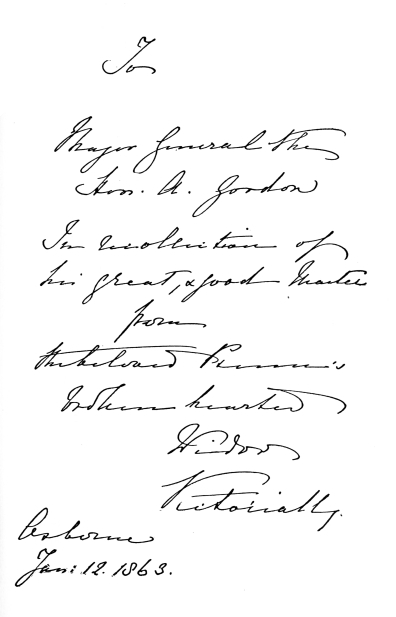 To
Major General the
Hon. A. Gordon
In recollection of
his great, & good Master
from
the beloved Prince's
broken hearted
Widow
Victoria R
Osborne
Jan: 12. 1863.